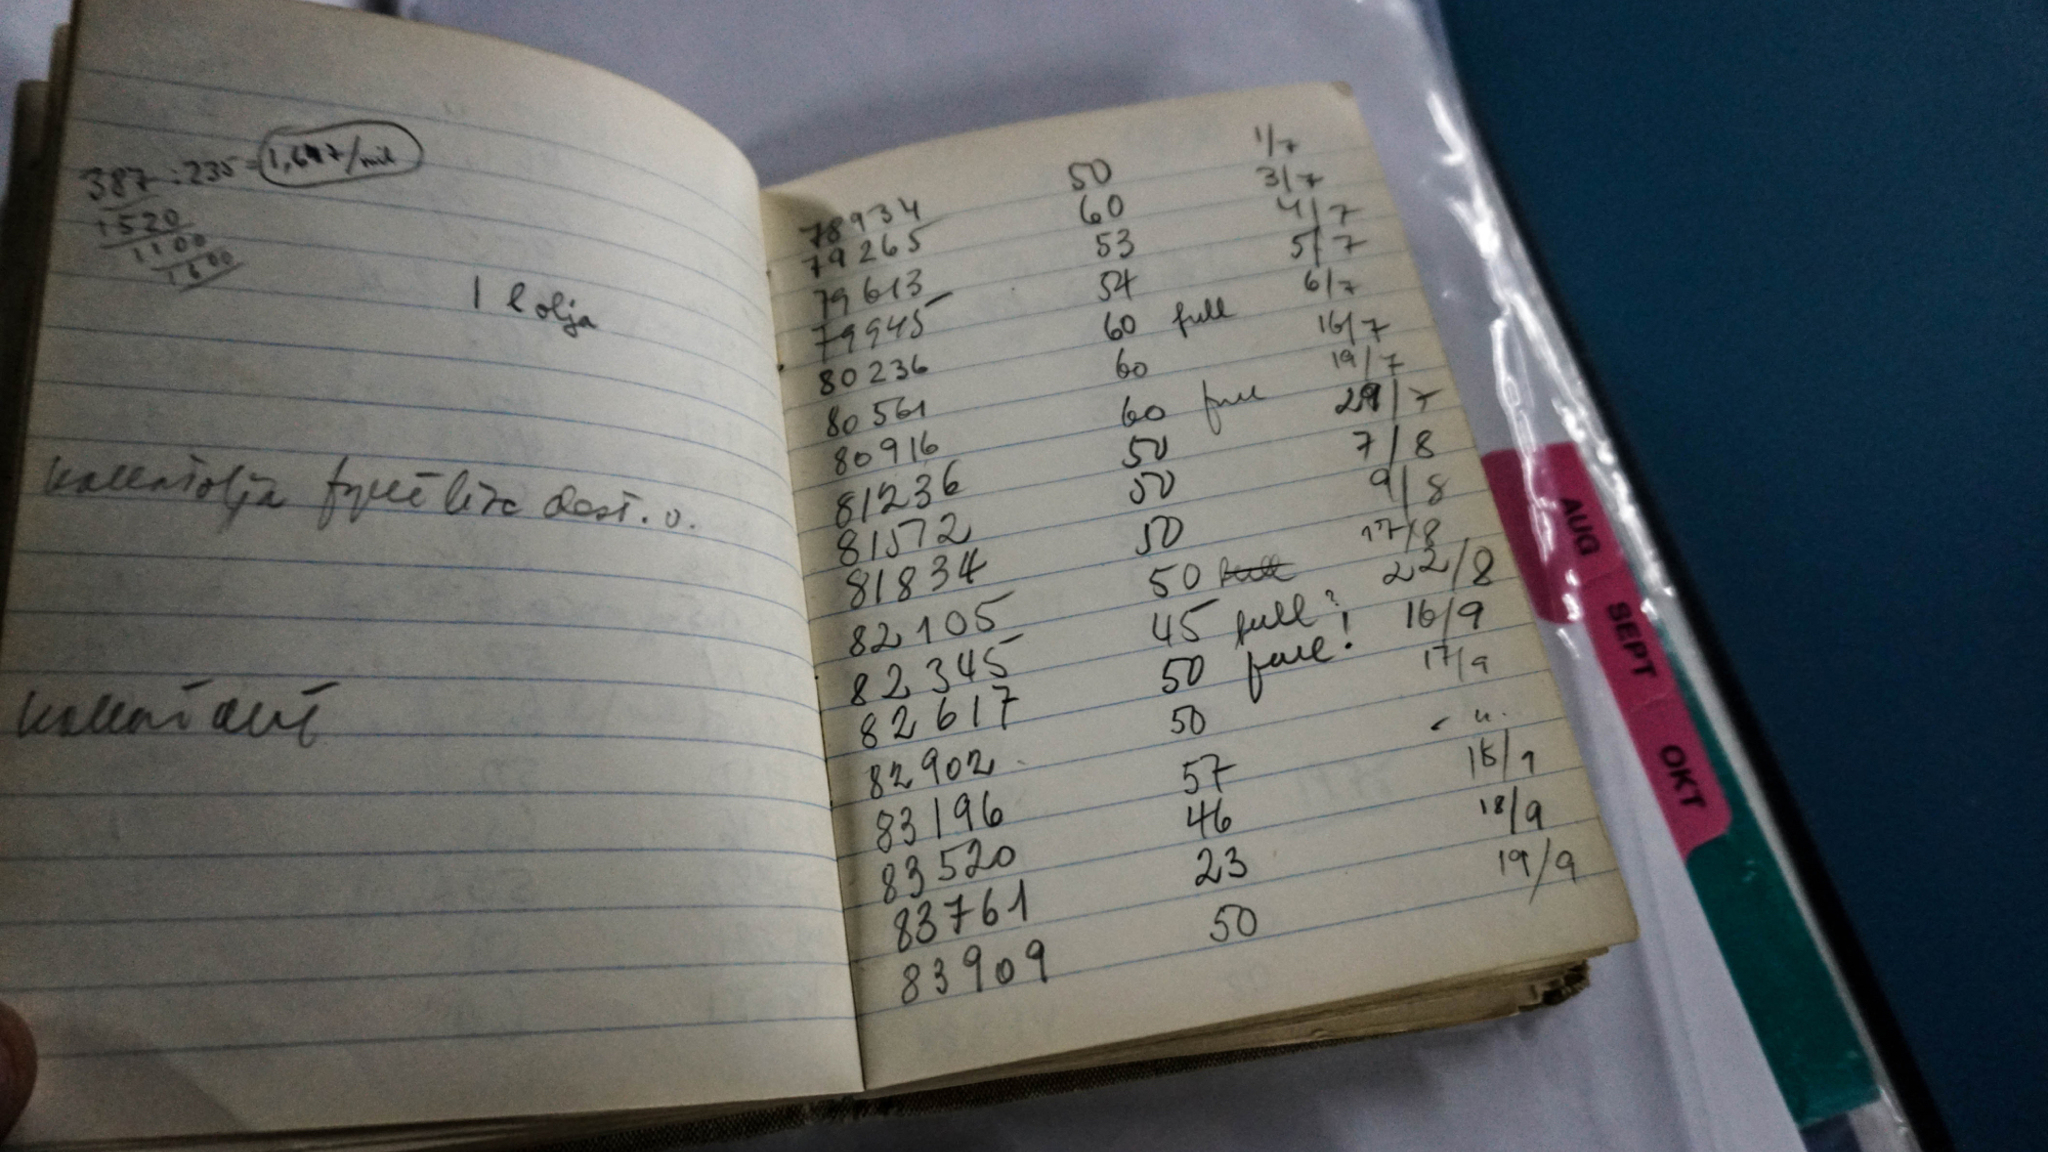 387 : 235 = 1,647/mil
1520
1100
1600
1 l olja
kollat olja fyllt lite dest. v.
kollat allt
78934 50 1/7
79265 60 3/7
79613 53 4/7
79945 54 5/7
80236 60 full 6/7
80561 60 16/7
80916 60 full 19/7
81236 50 29/7
81572 50 7/8
81834 50 9/8
82105 50 full 17/8
82345 45 full? 22/8
82617 50 full! 16/9
82902 50 17/9
83196 57 - " -
83520 46 18/9
83761 23 18/9
83909 50 19/9
AUG
SEPT
OKT